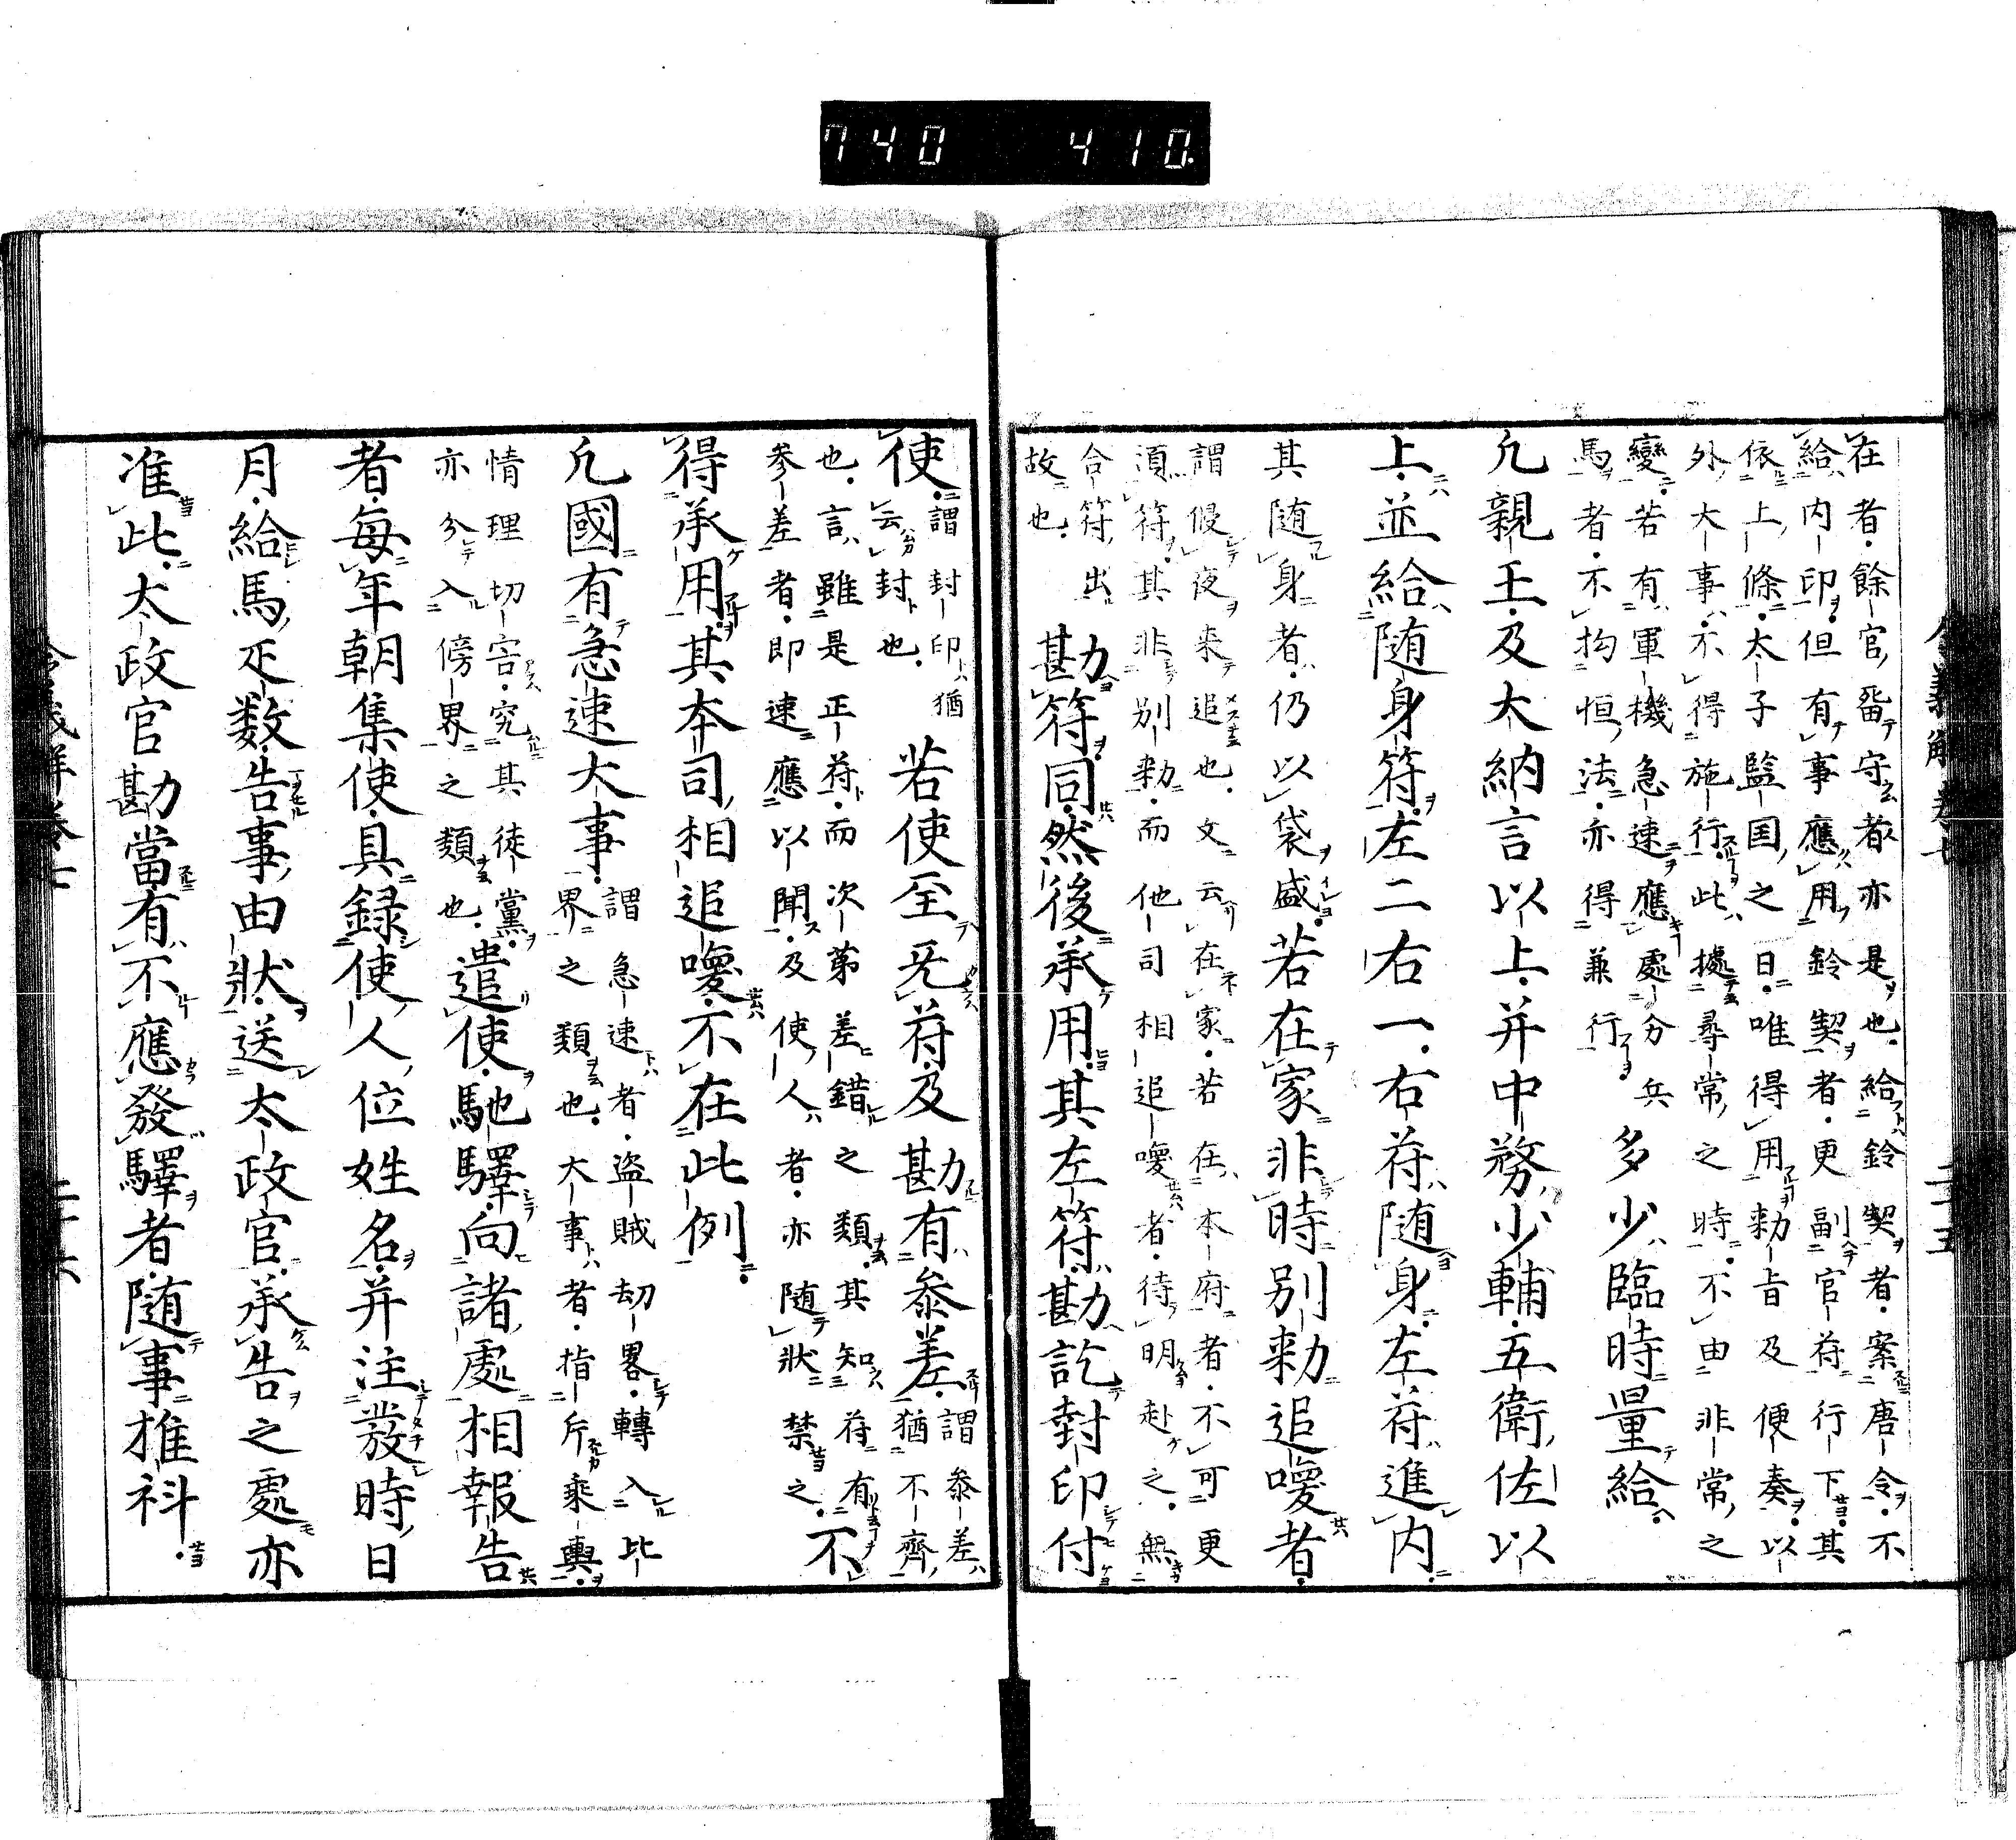 740 410
在者餘官留守者亦是也給鈴契者案唐令不
給内印但有事應用鈴契者更副官符行下其
依上條太子監国之日唯得用勅旨及便奏以
外大事不得施行此據尋常之時不由非常之
變若有軍機急速應處分兵
馬者不拘恒法亦得兼行
多少臨時量給
凡親王及大納言以上并中務少輔五衛佐以
上並給随身符左二右一右符随身左符進内
其随身者仍以袋盛若在家非時別勅追喚者
謂假夜来追也文云在家若在本府者不可更
湏符其非別勅而他司相追喚者待明赴之無
合符出
故也
勘符同然後承用其左符勘訖封印付
使
謂封印猶
云封也
若使至无符及勘有参差
謂参差猶不齊
也言雖是正符而次第差錯之類其知符有
参差者即速應以聞及使人者亦随狀禁之
不
得承用其本司相追喚不在此例
凡國有急速大事
謂急速者盗賊劫畧轉入比
界之類也大事者指斥乘輿
情理切害究其徒黨
亦分入傍界之類也
遣使馳驛向諸處相報告
者每年朝集使具録使人位姓名并注發時日
月給馬疋数告事由狀送太政官承告之處亦
准此太政官勘當有不應發驛者随事推科
令義解卷七 二十五
令義解卷七 二十六